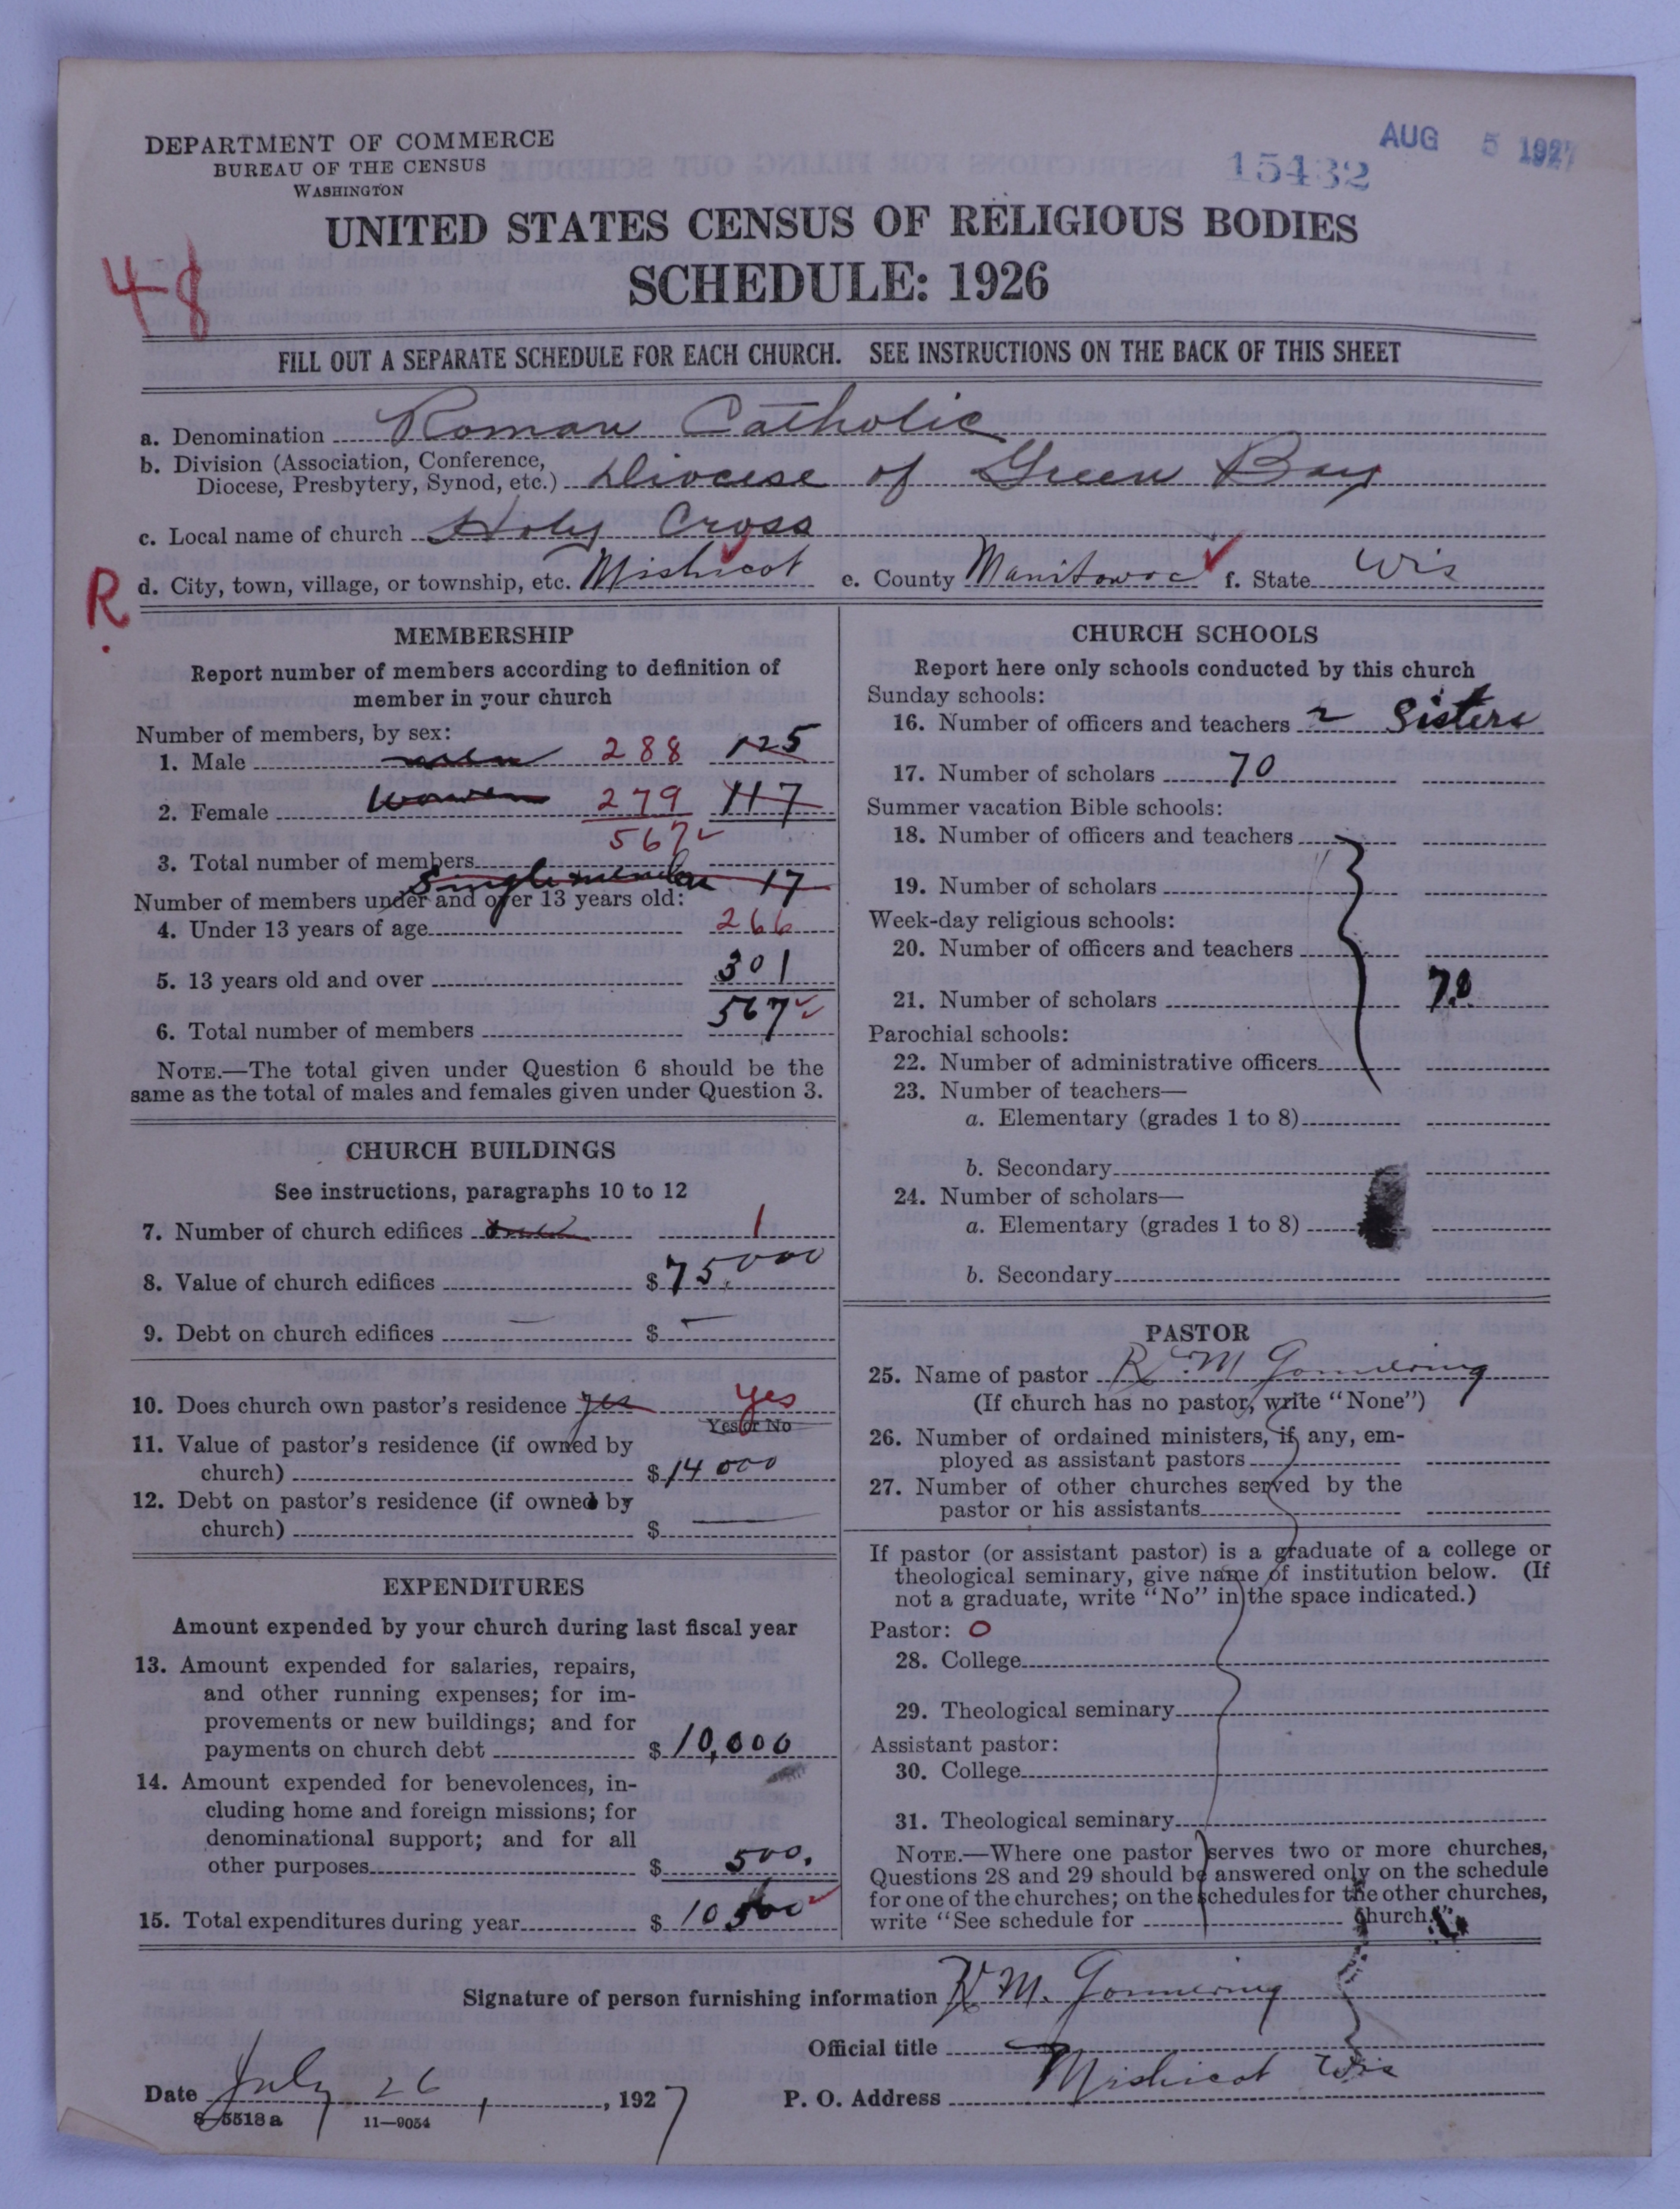 DEPARTMENT OF COMMERCE
BUREAU OF THE CENSUS
WASHINGTON
15432
AUG 5 1927
UNITED STATES CENSUS OF RELIGIOUS BODIES
SCHEDULE: 1926
48
FILL OUT A SEPARATE SCHEDULE FOR EACH CHURCH. SEE INSTRUCTIONS ON THE BACK OF THIS SHEET
a. Denomination Roman Catholic
b. Division (Association, Conference, Diocese, Presbytery, Synod, etc.) Diocese of Green Bay
c. Local name of church Holy Cross
R.
d. City, town, village, or township, etc. Mishicot e. County Manitowoc f. State Wis
MEMBERSHIP
Report number of members according to definition of
member in your church
Number of members, by sex:
1. Male men 288 125
2. Female women 279 117
567
3. Total number of members
Single member 17
Number of members under and over 13 years old:
4. Under 13 years of age 266
5. 13 years old and over 301
6. Total number of members 567
NOTE.—The total given under Question 6 should be the
same as the total of males and females given under Question 3.
CHURCH BUILDINGS
See instructions, paragraphs 10 to 12
7. Number of church edifices 1
8. Value of church edifices $75,000
9. Debt on church edifices — $ —
10. Does church own pastor's residence yes yes
Yes or No
11. Value of pastor's residence (if owned by
church) $14 000
12. Debt on pastor's residence (if owned by
church) $ —
EXPENDITURES
Amount expended by your church during last fiscal year
13. Amount expended for salaries, repairs,
and other running expenses; for im-
provements or new buildings; and for
payments on church debt $10,000
14. Amount expended for benevolences, in-
cluding home and foreign missions; for
denominational support; and for all
other purposes $ 500.
15. Total expenditures during year $ 10 500
CHURCH SCHOOLS
Report here only schools conducted by this church
Sunday schools:
16. Number of officers and teachers 2 Sisters
17. Number of scholars 70
Summer vacation Bible schools:
18. Number of officers and teachers
19. Number of scholars
Week-day religious schools:
20. Number of officers and teachers
21. Number of scholars 70
Parochial schools:
22. Number of administrative officers
23. Number of teachers—
a. Elementary (grades 1 to 8)
b. Secondary
24. Number of scholars—
a. Elementary (grades 1 to 8)
b. Secondary
PASTOR
25. Name of pastor R M Gonnering
(If church has no pastor, write "None")
26. Number of ordained ministers, if any, em-
ployed as assistant pastors
27. Number of other churches served by the
pastor or his assistants
If pastor (or assistant pastor) is a graduate of a college or
theological seminary, give name of institution below. (If
not a graduate, write "No" in the space indicated.)
Pastor: O
28. College
29. Theological seminary
Assistant pastor:
30. College
31. Theological seminary
NOTE.—Where one pastor serves two or more churches,
Questions 28 and 29 should be answered only on the schedule
for one of the churches; on the schedules for the other churches,
write "See schedule for church."
Signature of person furnishing information M. Gonnering
Official title
Date July 26, 1927 P. O. Address Mishicot Wis
8-5518 a 11-9054